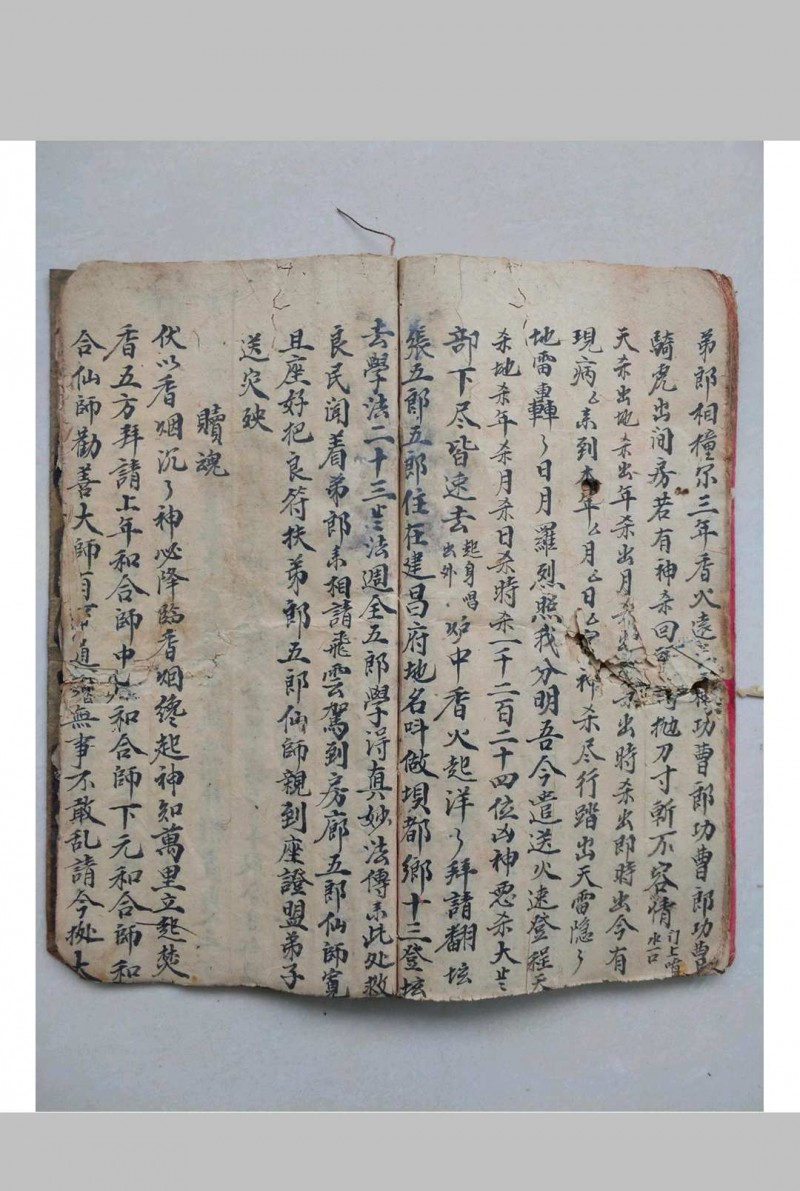 弟郎相撞尔三年香火遠功曹郎功曹郎功曹
騎虎出间房若有神杀回抛刀寸斬不容情门上噴水一口
天杀出地杀出年杀出月杀出時杀出即時出今有
現病么么来到本年么月么日么神杀尽行踏出天雷隐々
地雷轟々日月羅烈照我分明吾今遣送火速登程天
杀地杀年杀月杀日杀時杀一千二百二十四位凶神恶杀大
部下尽皆速去起身唱出外炉中香火起洋々拜請翻坛
張五郎五郎住在建昌府地名叫做埧都鄉十三登坛
去學法二十三法週全五郎學淂真妙法傳来此处救
良民闻着弟郎来相請飛雲駕到房廊五郎仙師寬
且座好把良符扶弟郎五郎仙師親到座證盟弟子
送灾殃
贖魂
伏以香烟沉々神必降臨香烟纔起神知萬里立起焚
香五方拜請上年和合師中元和合師下元和合師和
合仙師勸善大師有無事不敢乱請今拠大